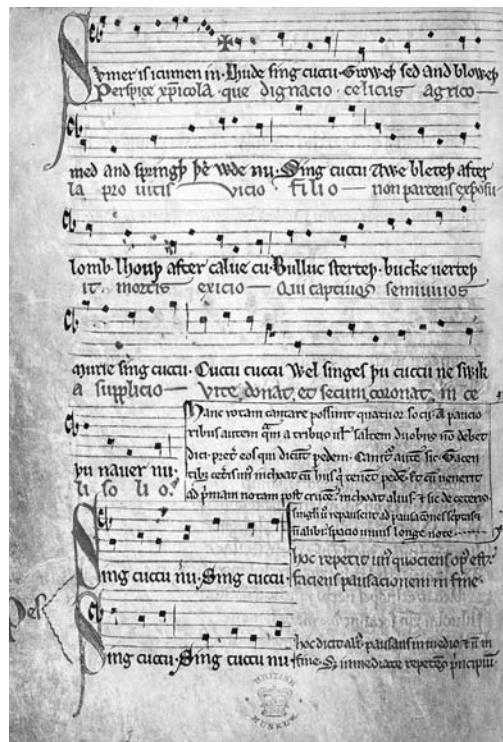 Svmer is icumen in. Lhude sing cuccu. Groweþ sed and bloweþ
Perspice xp̄icola que dignacio celicus agrico
med and springþ þe wde nu. Sing cuccu Awe bleteþ after
la pro uitis vicio filio non parcens exposu
lomb. lhouþ after calue cu. Bulluc sterteþ. bucke uerteþ
it mortis exicio Qui captiuos semiuiuos
murie sing cuccu. Cuccu cuccu Wel singes þu cuccu ne swik
a supplicio Vite donat et secum coronat in ce
þu nauer nu.
li solio.
Hanc rotam cantare possunt quatuor socii. A paucio
ribus autem qͣm a tribus uͭl saltem duobus nō debet
dici. pret̉ eos qui dicūt pedem. Canit̉ autē sic. Tacen
tibꝫ cet̉is unꝰ inchoat cū hiis qͥ tenēt pedē. Et cū uenerit
ad pͥmam notam post crucē. inchoat aliuꝰ. et sic de ceteris
singuli ū repausent ad pausacōnes scriptas
nō alibi. spacio unius longe note
Sing cuccu nu. Sing cuccu.
hoc repetit unꝰ quociens opꝰ est.
faciens pausacionem in fine.
Pes
Sing cuccu. Sing cuccu nu
hoc dicit aliꝰ. pausans in medio et nō in
fine. Sꝫ immediate repetēs pͥncipiū.
BRITISH MUSEUM